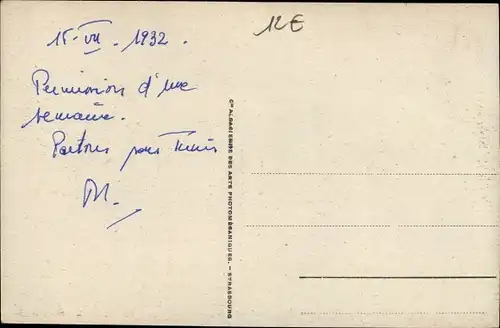 15-VII. 1932.
12€
Permission d'une
semaine.
Partons pour Tunis
M.
Cie ALSACIENNE DES ARTS PHOTOMÉCANIQUES. - STRASBOURG